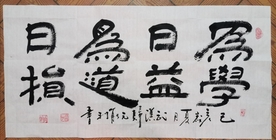 為學
日益
為道
日損
己亥夏月
書